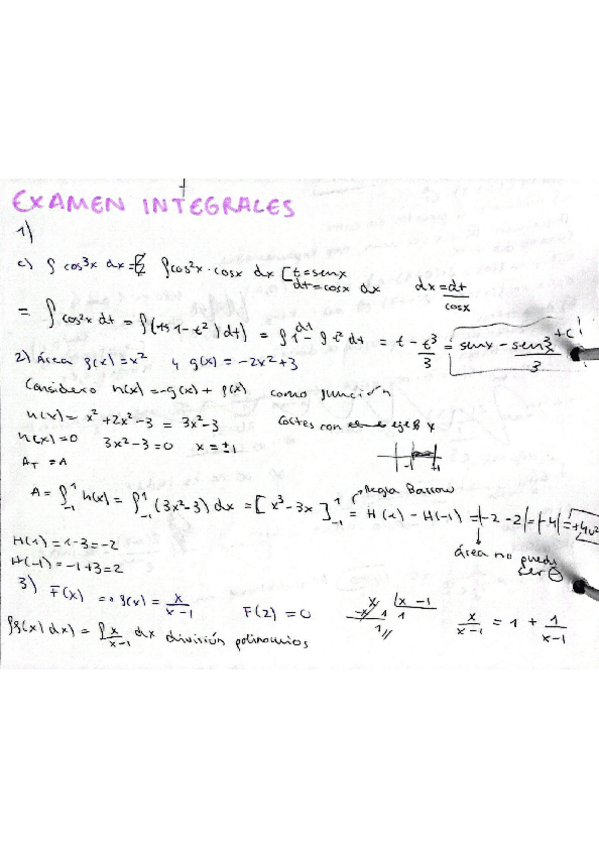 EXAMEN INTEGRALES
1)
c) ∫ cos³x dx = ∫cos²x · cosx dx [t = senx
dt = cosx dx dx = dt/cosx
= ∫cos²x dt = ∫(1 - t²) dt) = ∫1 dt - ∫t² dt = t - t³/3 = senx - sen³x/3 + C
2) Área f(x) = x² y g(x) = -2x² + 3
Considero h(x) = -g(x) + f(x) como función
h(x) = x² + 2x² - 3 = 3x² - 3 Cortes con eje x
h(x) = 0 3x² - 3 = 0 x = ±1
-1 +1
A_T = A
A = ∫₋₁¹ h(x) = ∫₋₁¹ (3x² - 3) dx = [x³ - 3x]₋₁¹ = H(1) - H(-1) = |-2 - 2| = |-4| = +4u²
Regla Barrow
H(1) = 1 - 3 = -2
H(-1) = -1 + 3 = 2
área no puede ser ⊖
3) F(x) f(x) = x/(x-1) F(2) = 0
x |x - 1
-x 1 1
1//
x/(x-1) = 1 + 1/(x-1)
∫f(x) dx) = ∫x/(x-1) dx división polinomios